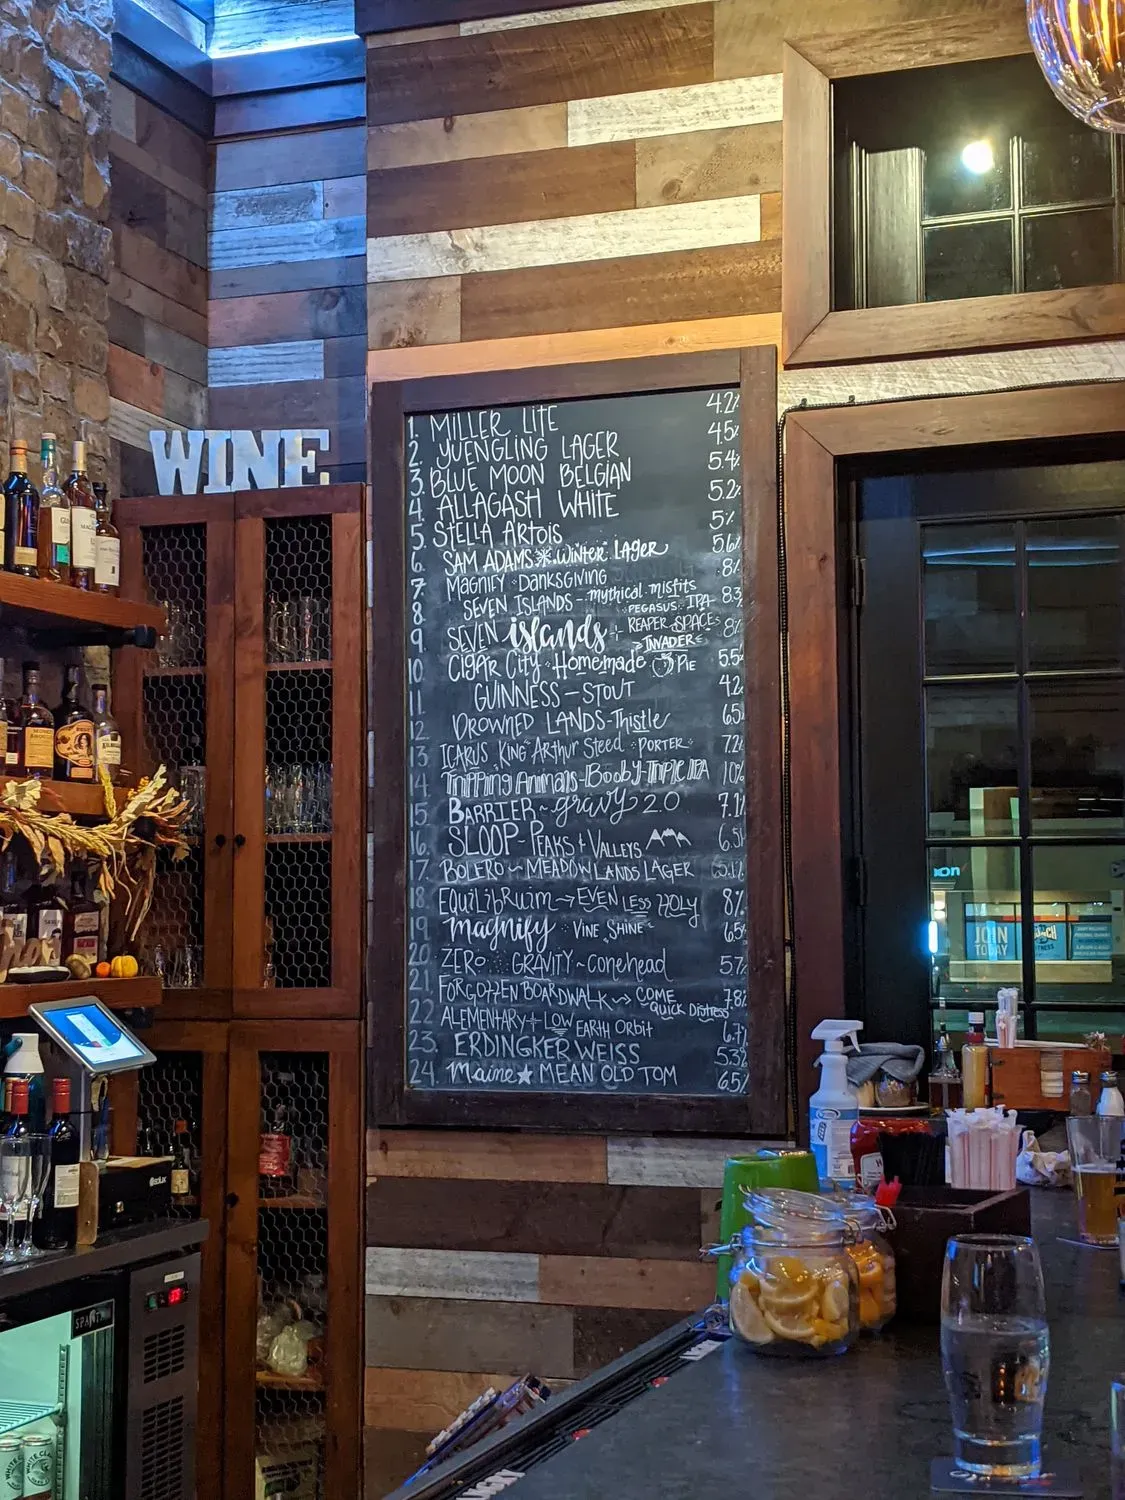 WINE
1. MILLER LITE 4.2%
2. YUENGLING LAGER 4.5%
3. BLUE MOON BELGIAN 5.4%
4. ALLAGASH WHITE 5.2%
5. STELLA ARTOIS 5%
6. SAM ADAMS WINTER LAGER 5.6%
7. MAGNIFY DANKSGIVING 8%
8. SEVEN ISLANDS - mythical misfits PEGASUS IPA 8.3
9. SEVEN islands + REAPER SPACE INVADER 8%
10. CIGAR CITY Homemade PIE 5.5
11. GUINNESS - STOUT 4.2
12. DROWNED LANDS - Thistle 6.5
13. ICARUS KING ARTHUR Steed PORTER 7.2
14. Tripping Animals - Booby-Triple IPA 10%
15. BARRIER ~ gravy 2.0 7.1%
16. SLOOP - PEAKS + VALLEYS 6.5%
17. BOLERO ~ MEADOWLANDS LAGER
18. EQUILIBRUIM → EVEN LESS HOLY 8%
19. Magnify VINE SHINE 6.5
20. ZERO GRAVITY ~ conehead 5.7
21. FORGOTTEN BOARDWALK → COME QUICK DISTRESS 7.8%
22. ALEMENTARY + LOW EARTH ORBIT 6.7%
23. ERDINGKER WEISS 5.3
24. Maine ★ MEAN OLD TOM 6.5%
JOIN
TODAY
WHITE CLAW